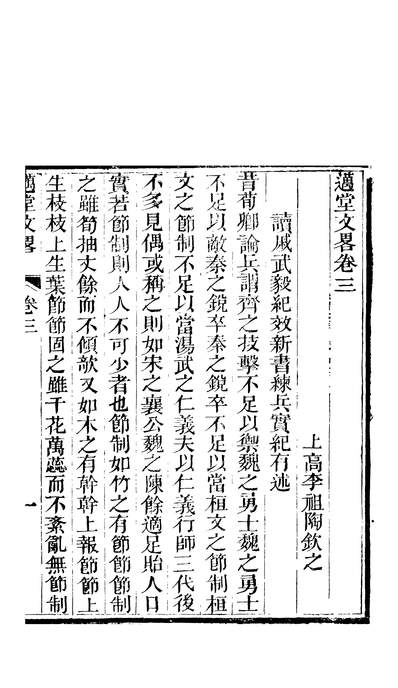 邁堂文畧卷三
上高李祖陶欽之
讀戚武毅紀效新書練兵實紀有述
昔荀卿論兵謂齊之技擊不足以禦魏之勇士魏之勇士
不足以敵秦之銳卒秦之銳卒不足以當桓文之節制桓
文之節制不足以當湯武之仁義夫以仁義行師三代後
不多見偶或稱之則如宋之襄公魏之陳餘適足貽人口
實若節制則人人不可少者也節制如竹之有節節節制
之雖筍抽丈餘而不傾欹又如木之有幹幹上報節節上
生枝枝上生葉節節固之雖千花萬蕊而不紊亂無節制
邁堂文畧
卷三
一